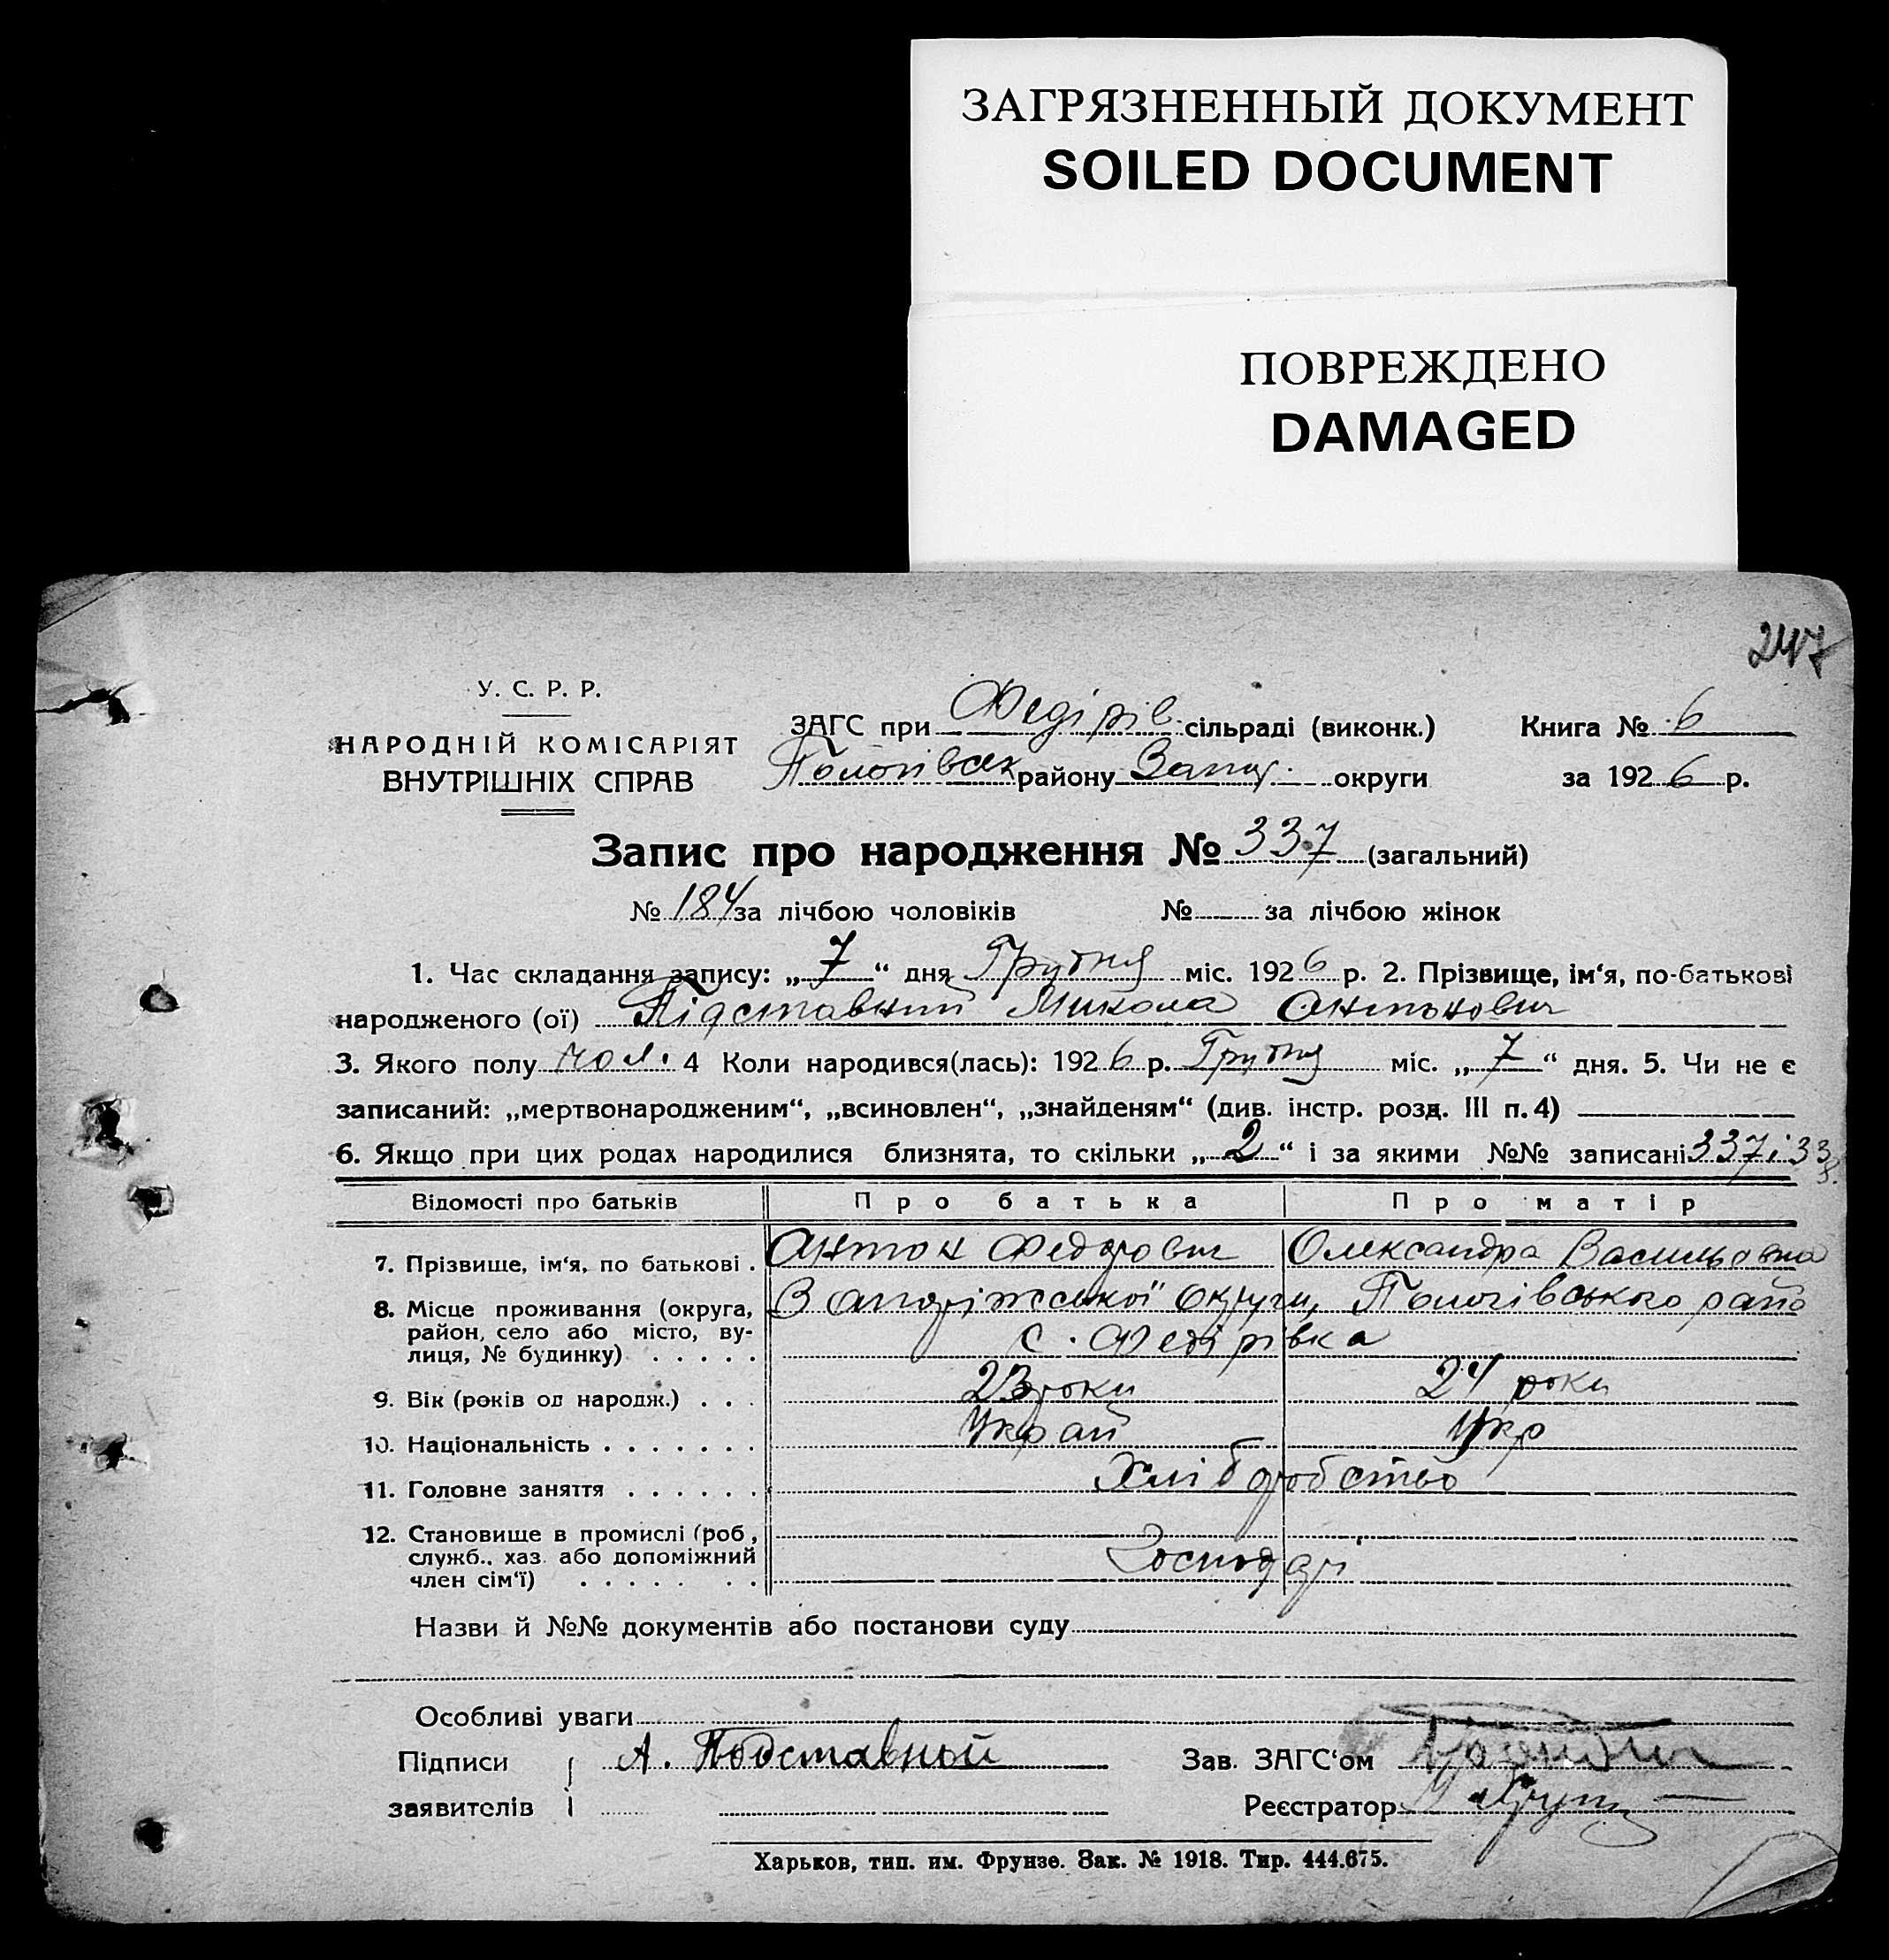 ЗАГРЯЗНЕННЫЙ ДОКУМЕНТ
SOILED DOCUMENT
ПОВРЕЖДЕНО
DAMAGED
247
У. С. Р. Р.
НАРОДНІЙ КОМІСАРІЯТ
ВНУТРІШНІХ СПРАВ
ЗАГС при Федірів. сільраді (виконк.) Книга № 6
Пологівськ району Запор. округи за 1926 р.
Запис про народження № 337 (загальний)
№ 184 за лічбою чоловіків № за лічбою жінок
1. Час складання запису: „7“ дня Грудня міс. 1926 р. 2. Прізвище, ім‘я, по-батькові
народженого (ої) Підставний Микола Антонович
3. Якого полу чол. 4 Коли народився(лась): 1926 р. Грудня міс. „7“ дня. 5. Чи не є
записаний: „мертвонародженим“, „всиновлен“, „знайденям“ (див. інстр. розд. III п. 4)
6. Якщо при цих родах народилися близнята, то скільки „2“ і за якими №№ записані 337 і 338.
Відомості про батьків Про батька Про матір
7. Прізвище, ім‘я, по батькові . Антон Федорович Олександра Васильовна
8. Місце проживання (округа, Запоріжської округи, Пологівського райо
район, село або місто, ву-
лиця, № будинку) . . . . . с. Федірівка
9. Вік (років од народж.) . . . 23 роки 24 роки
10. Національність . . . . . . . Украй Укр
11. Головне заняття . . . . . . Хліборобство
12. Становище в промислі (роб.,
служб., хаз. або допоміжний Господарі
член сім‘ї) . . . . . . .
Назви й №№ документів або постанови суду
Особливі уваги
Підписи А. Подставной Зав. ЗАГС‘ом
заявителів Реєстратор
Харьков, тип. им. Фрунзе. Зак. № 1918. Тир. 444.675.